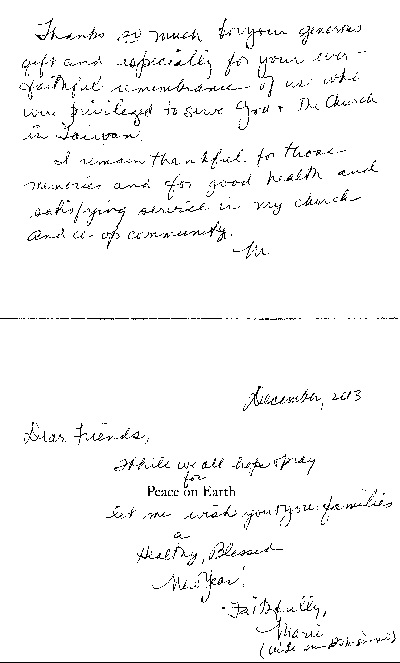 Thanks so much for your generous
gift and especially for your ever-
faithful remembrance of us who
were privileged to serve God + The Church
in Taiwan.
I remain thankful for those
memories and for good health and
satisfying service in my church
and co-op community.
M.
December, 2013
Dear Friends,
While we all hope & pray
for
Peace on Earth
let me wish you & your families
a
Healthy, Blessed
New Year!
Faithfully,
Marie